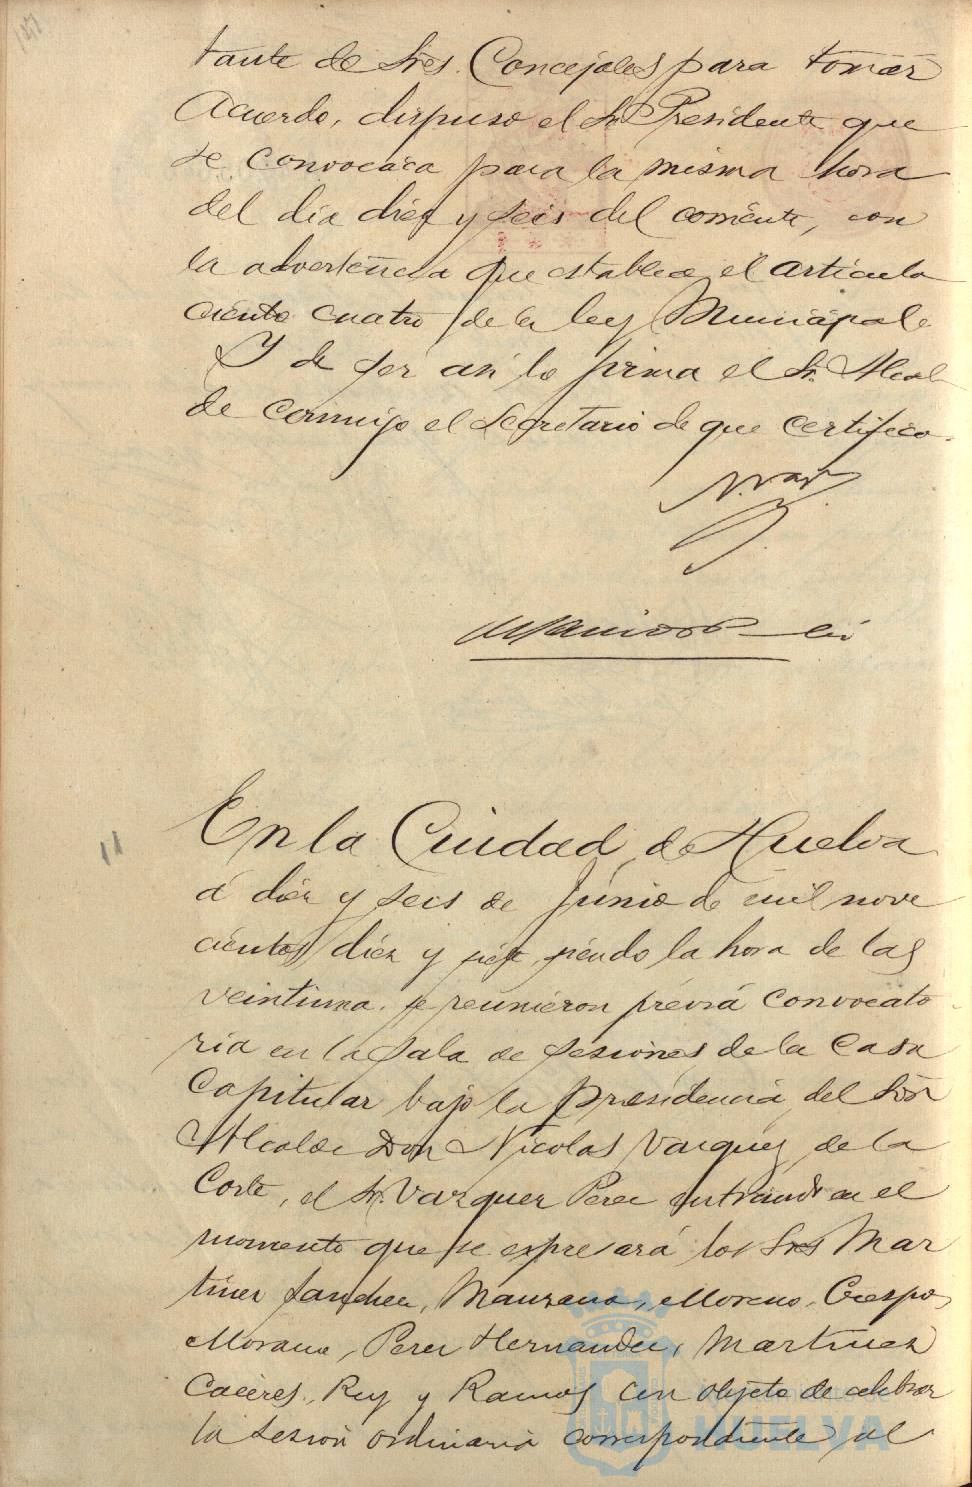 tante de Sres. Concejales para tomar
Acuerdo, dispuso el Sr. Presidente que
se convocara para la misma hora
del dia diez y seis del corriente, con
la advertencia que establece el articulo
ciento cuatro de la ley Municipal.
Y de ser asi lo firma el Sr. Alcal
de conmigo el Secretario de que certifico.
11
En la Ciudad de Huelva
á diez y seis de Junio de mil nove
cientos diez y siete, siendo la hora de las
veintiuna, se reunieron prévia convocato
ria en la Sala de Sesiones de la Casa
Capitular bajo la presidencia del Señor
Alcalde Don Nicolas Vazquez de la
Corte, el Sr. Vazquez Perez entrando en el
momento que se expresará los Sres Mar
tinez Sanchez, Manzano, Moreno, Crespo,
Morano, Perez Hernandez, Martinez
Caceres, Rey y Ramos con objeto de celebrar
la sesion ordinaria correspondiente al
Ayuntamiento de
HUELVA